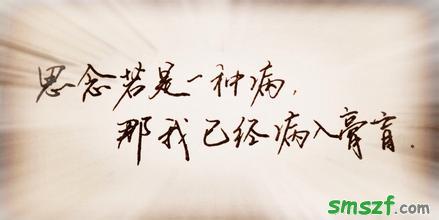 思念若是一种病，
那我已经病入膏肓．
smszf.com